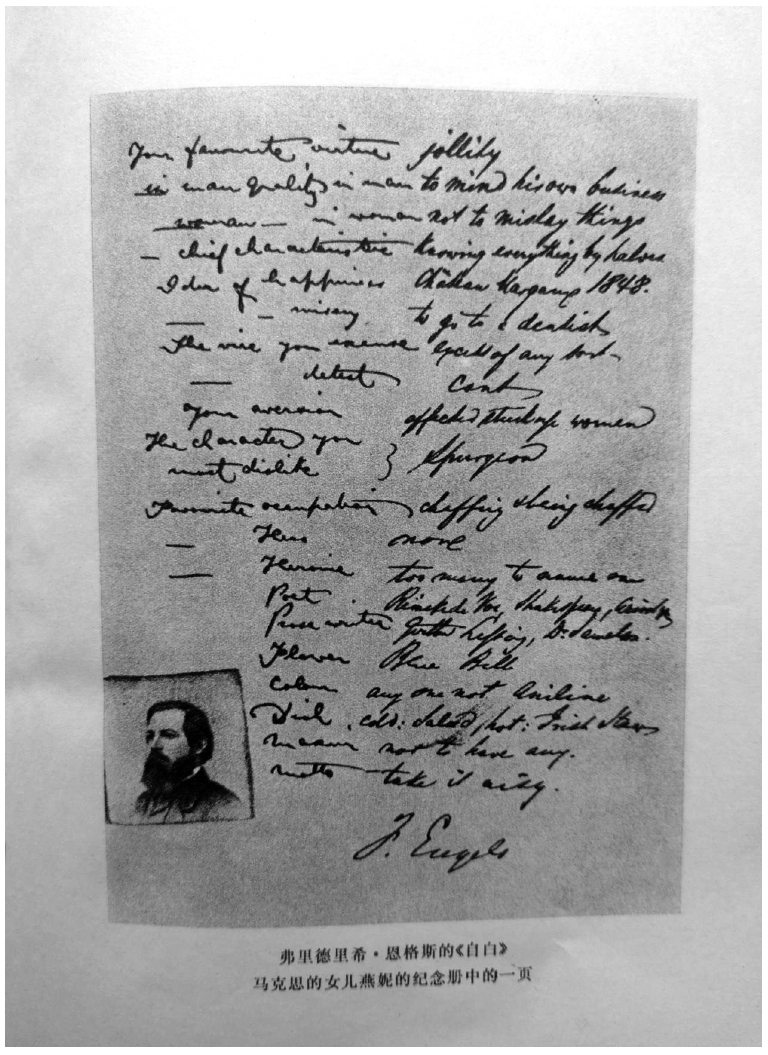 Your favourite virtue jollity
in man quality in man to mind his own business
woman — in woman not to mislay things
— chief characteristic Knowing everything by halves
Idea of happiness Château Margaux 1848.
— — misery to go to a dentist
The vice you excuse excess of any sort —
— detest Cant
Your aversion affected stuck up women
The character you
most dislike } Spurgeon
Favourite occupation chaffing & being chaffed
— Hero none
— Heroine too many to name one
Poet Shakespeare,
Prose writer Goethe Lessing, Dr.
Flower Blue Bell
Colour any one not Aniline
Dish cold: Salad, hot: Irish Stew
Maxim not to have any.
motto — take it aisy.
F. Engels
弗里德里希·恩格斯的《自白》
马克思的女儿燕妮的纪念册中的一页